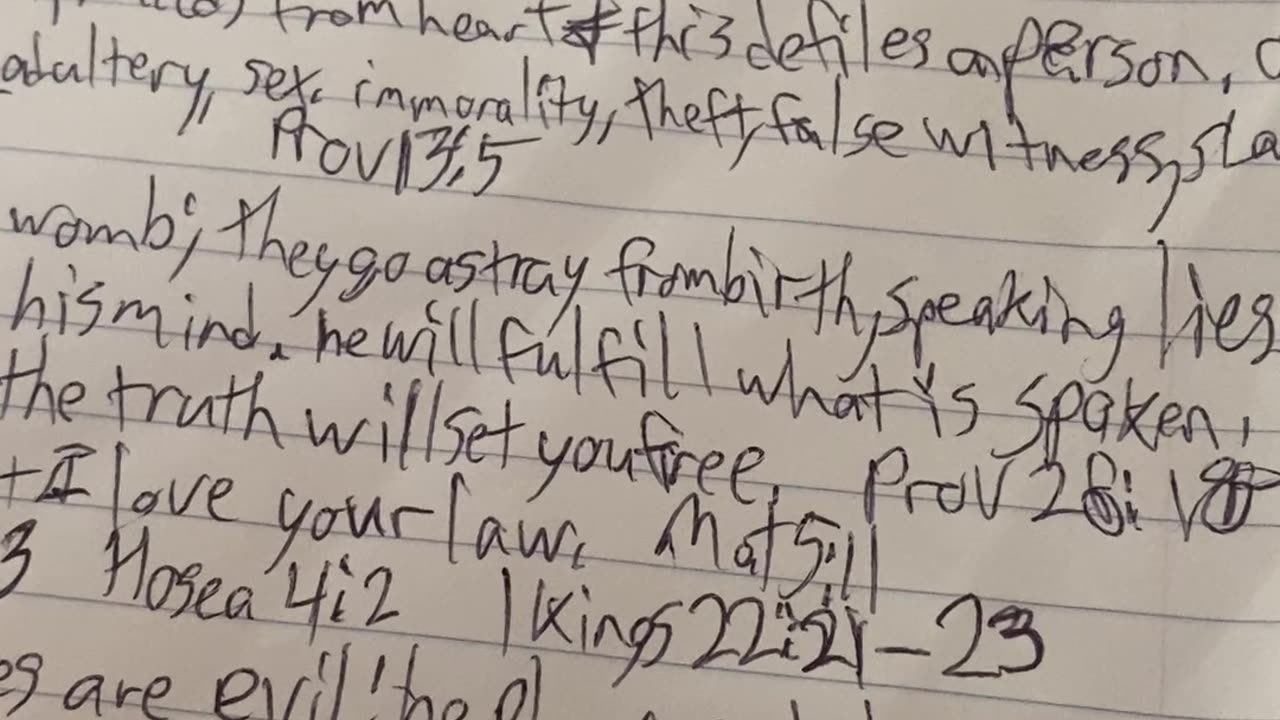 from heart & this defiles a person,
adultery, sex. immorality, theft, false witness, sla
Prov 13:5
womb; they go astray from birth, speaking lies
his mind. he will fulfill what is spoken,
the truth will set you free. Prov 26:18
+ I love your law. Mat 5:11
3 Hosea 4:2 1 Kings 22:21-23
es are evil! he